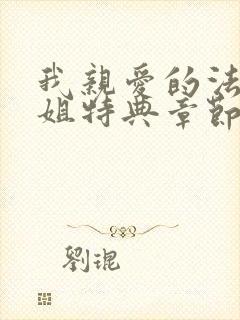 我親愛的法
姐特典章節
劉琨